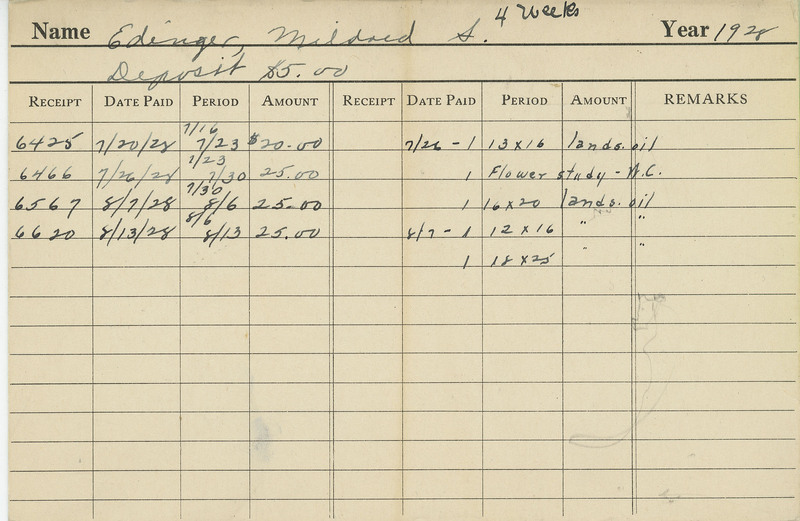 4 Weeks
Name Edinger, Mildred S. Year 1928
Deposit $5.00
RECEIPT DATE PAID PERIOD AMOUNT RECEIPT DATE PAID PERIOD AMOUNT REMARKS
7/16
6425 7/20/28 7/23 $20.00 7/26 - 1 13 x 16 lands. oil
7/23
6466 7/26/28 7/30 25.00 1 Flower study - W.C.
7/30
6567 8/7/28 8/6 25.00 1 16 x 20 lands. oil
8/6
6620 8/13/28 8/13 25.00 8/7 - 1 12 x 16 " "
1 18 x 25 " "